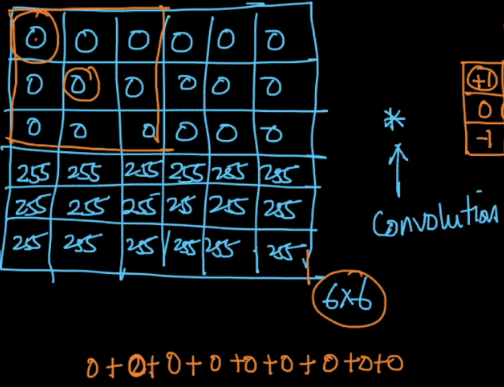 0 0 0 0 0 0
0 0 0 0 0 0
0 0 0 0 0 0
255 255 255 255 255 255
255 255 255 25 255 255
255 255 255 255 255 255
*
+1
0 0
-1
Convolution
6x6
0+0+0+0+0+0+0+0+0